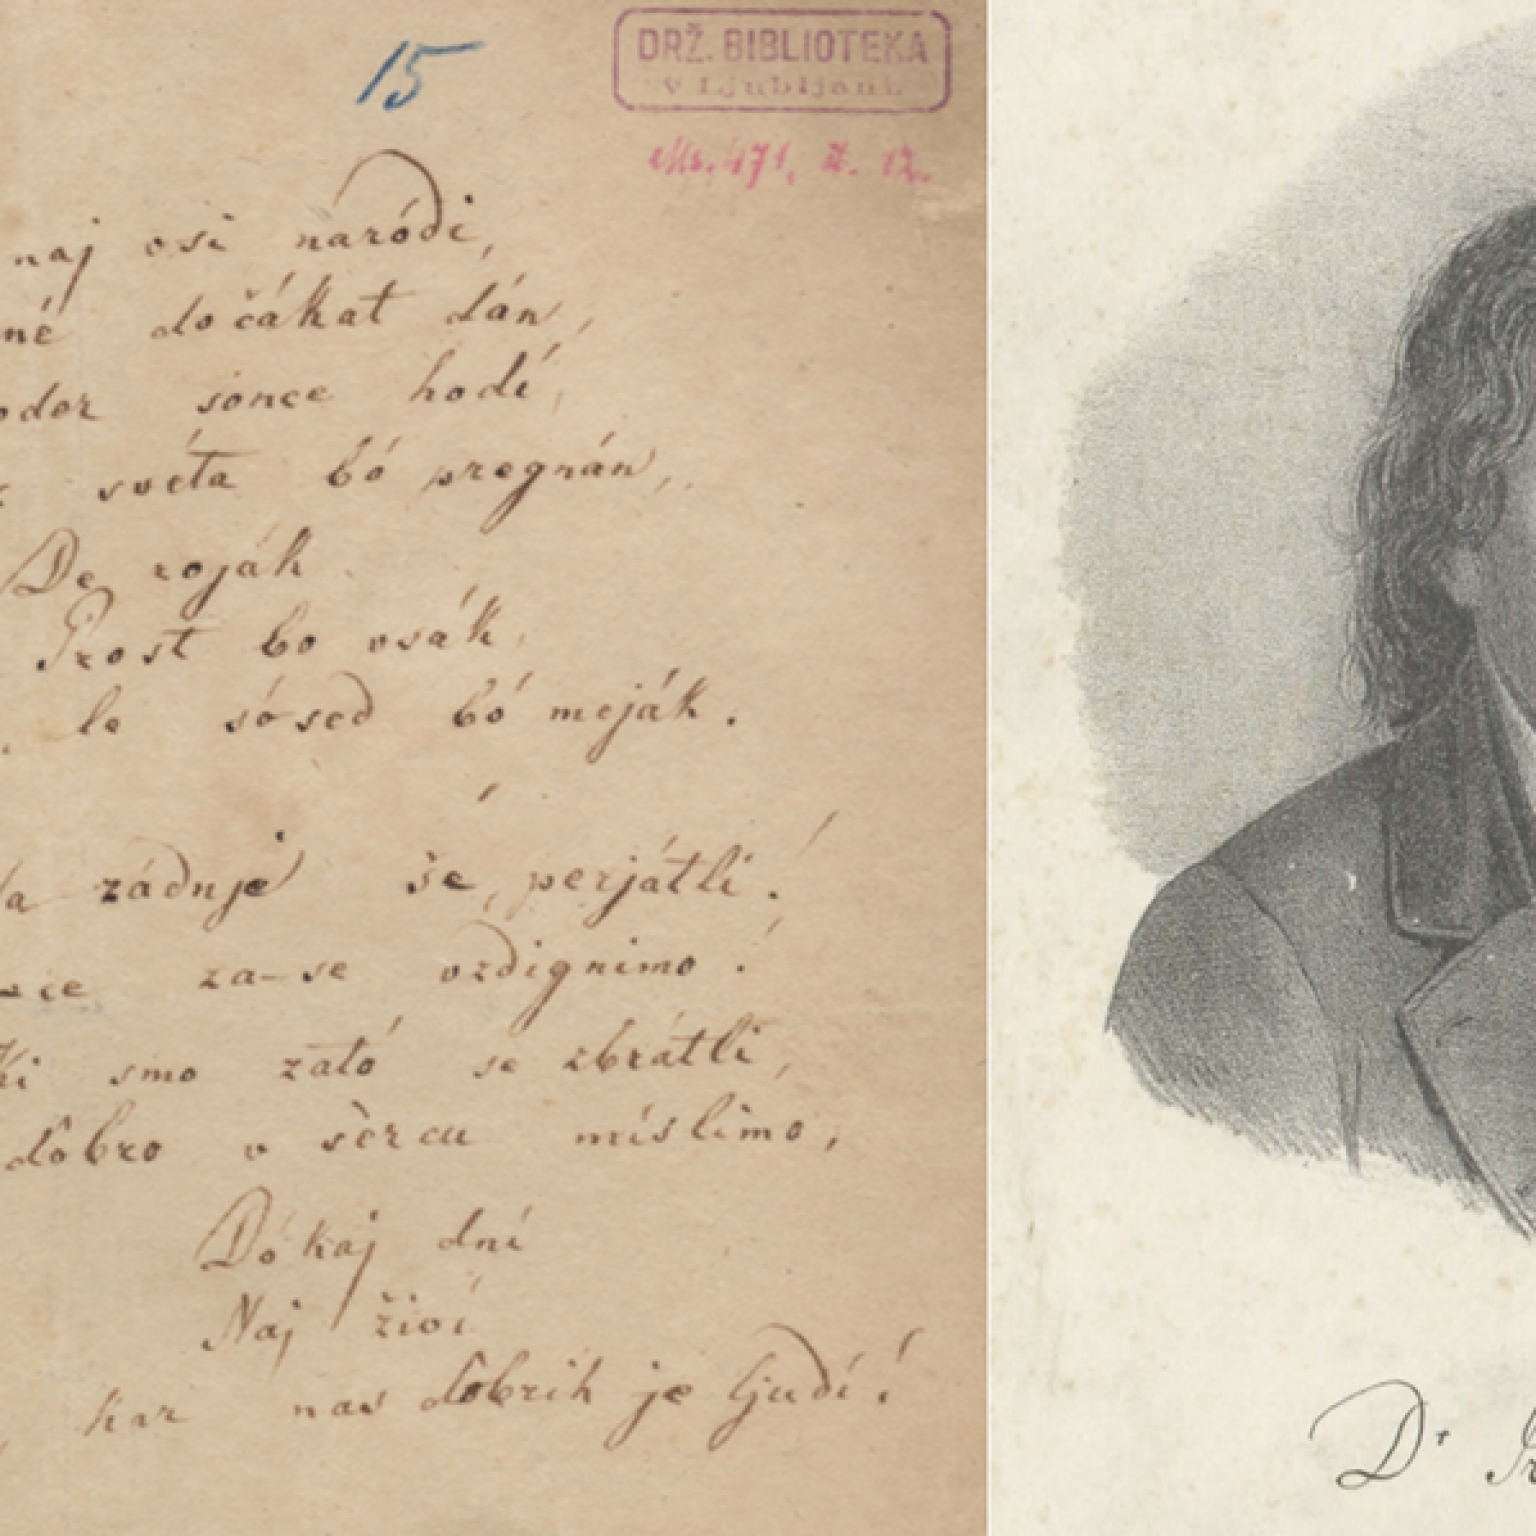 15
DRŽ. BIBLIOTEKA
v Ljubljani.
Ms. 471, 12.
naj vsi naródi,
dočákat dán,
sonce hodí,
svéta bó pregnán,
De roják
Prost bo vsák,
le sósed bó meják.
zádnje še, perjátli!
za-se vzdignimo!
Ki smo zató se zbrátli,
dobro v sèrcu míslimo,
Dókaj dní
Naj živí
kar nas dobrih je ljudí!
Dr